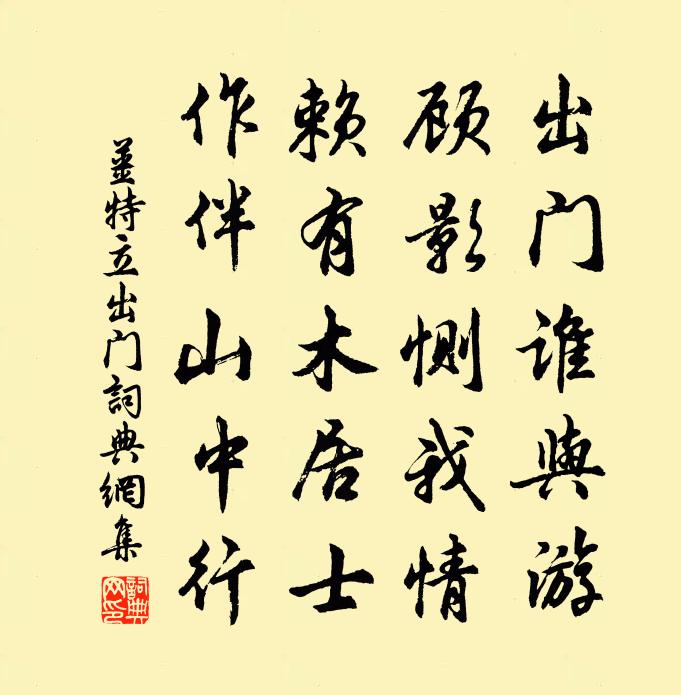 出门谁与游
顾影恻我情
赖有木居士
作伴山中行
姜特立出门詞典網集
詞典网印